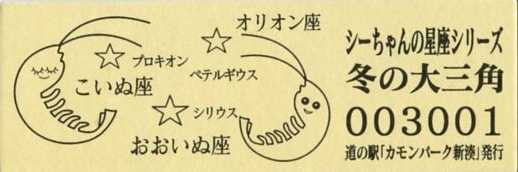 オリオン座
プロキオン
ベテルギウス
こいぬ座
シリウス
おおいぬ座
シーちゃんの星座シリーズ
冬の大三角
003001
道の駅「カモンパーク新湊」発行